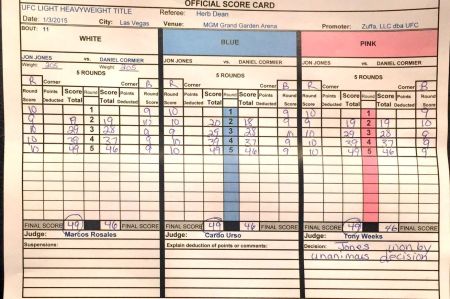 OFFICIAL SCORE CARD
UFC LIGHT HEAVYWEIGHT TITLE Referee: Herb Dean
Date: 1/3/2015 City: Las Vegas Venue: MGM Grand Garden Arena Promoter: Zuffa, LLC dba UFC
BOUT: 11
WHITE BLUE PINK
JON JONES vs. DANIEL CORMIER JON JONES vs. DANIEL CORMIER JON JONES vs. DANIEL CORMIER
Weight: 205 Weight: 205
5 ROUNDS 5 ROUNDS 5 ROUNDS
R Corner Corner B R Corner Corner B R Corner Corner B
Round Score Points Deducted Score Total Round Score Total Points Deducted Round Score Round Score Points Deducted Score Total Round Score Total Points Deducted Round Score Round Score Points Deducted Score Total Round Score Total Points Deducted Round Score
10 1 9 10 1 9 10 1 9
9 19 2 19 10 10 20 2 18 9 9 19 2 19 10
10 29 3 28 9 9 29 3 28 10 10 29 3 28 9
10 39 4 37 9 10 39 4 37 9 10 39 4 37 9
10 49 5 46 9 10 49 5 46 9 10 49 5 46 9
FINAL SCORE 49 46 FINAL SCORE FINAL SCORE 49 46 FINAL SCORE FINAL SCORE 49 46 FINAL SCORE
Judge: Marcos Rosales Judge: Cardo Urso Judge: Tony Weeks
Suspensions: Explain deduction of points or comments: Decision: Jones won by
unanimous decision